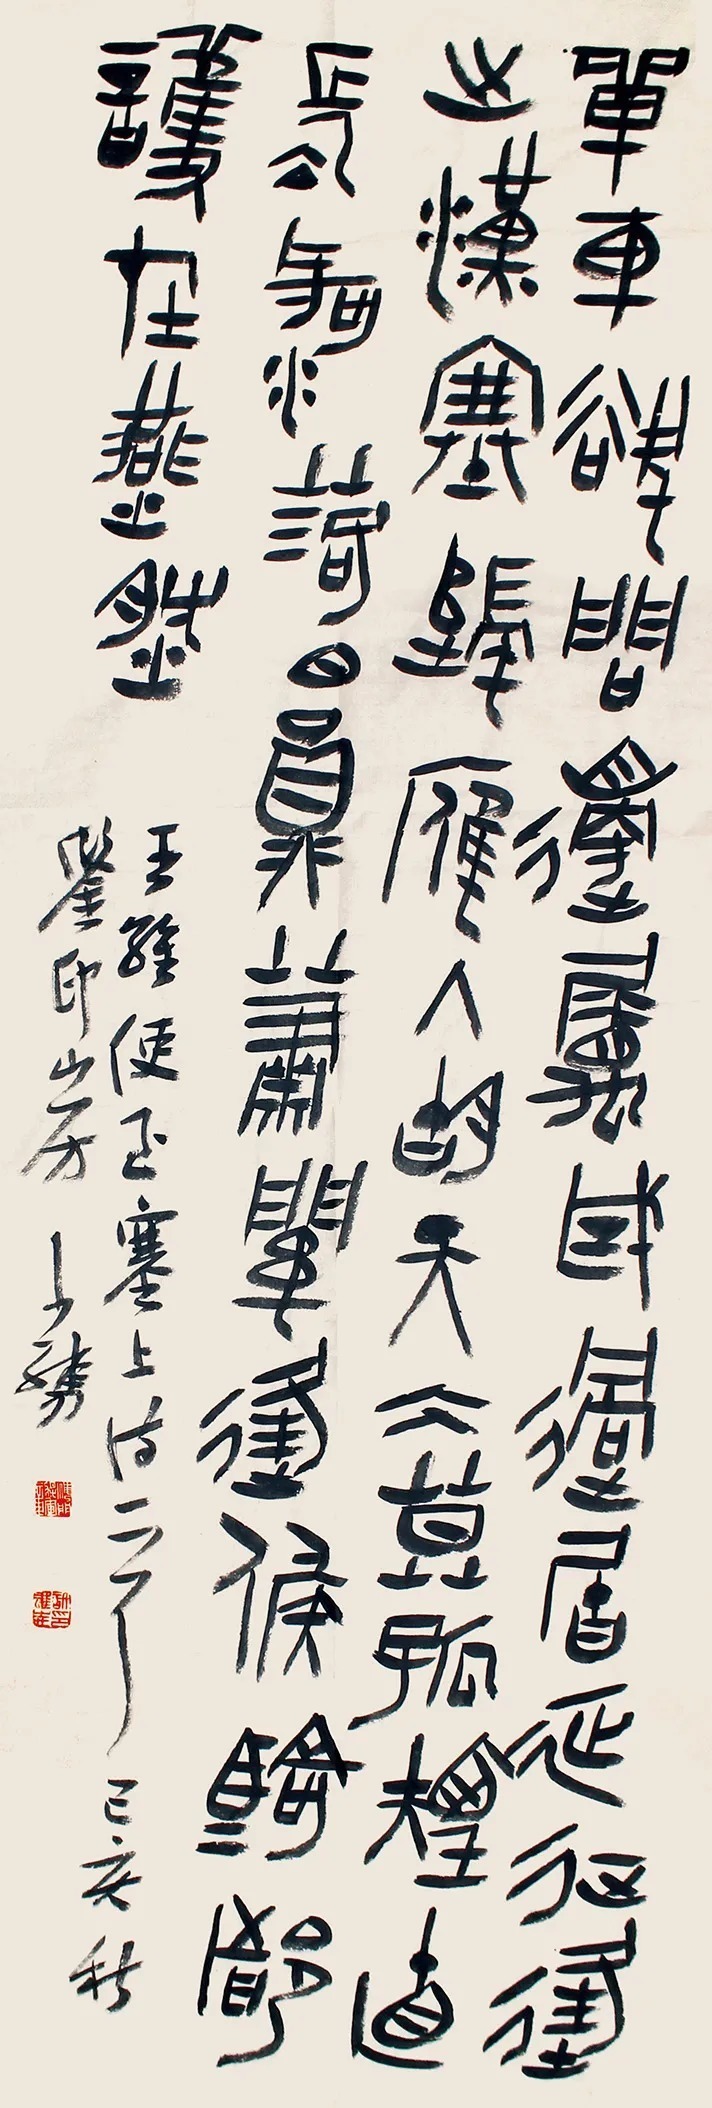 單車欲問邊屬國過居延征逢
出漢塞歸雁入胡天大莫孤煙直
長河落日圓蕭關逢候騎都
護在燕然
王維使至塞上诗一首 己亥秋
印山房